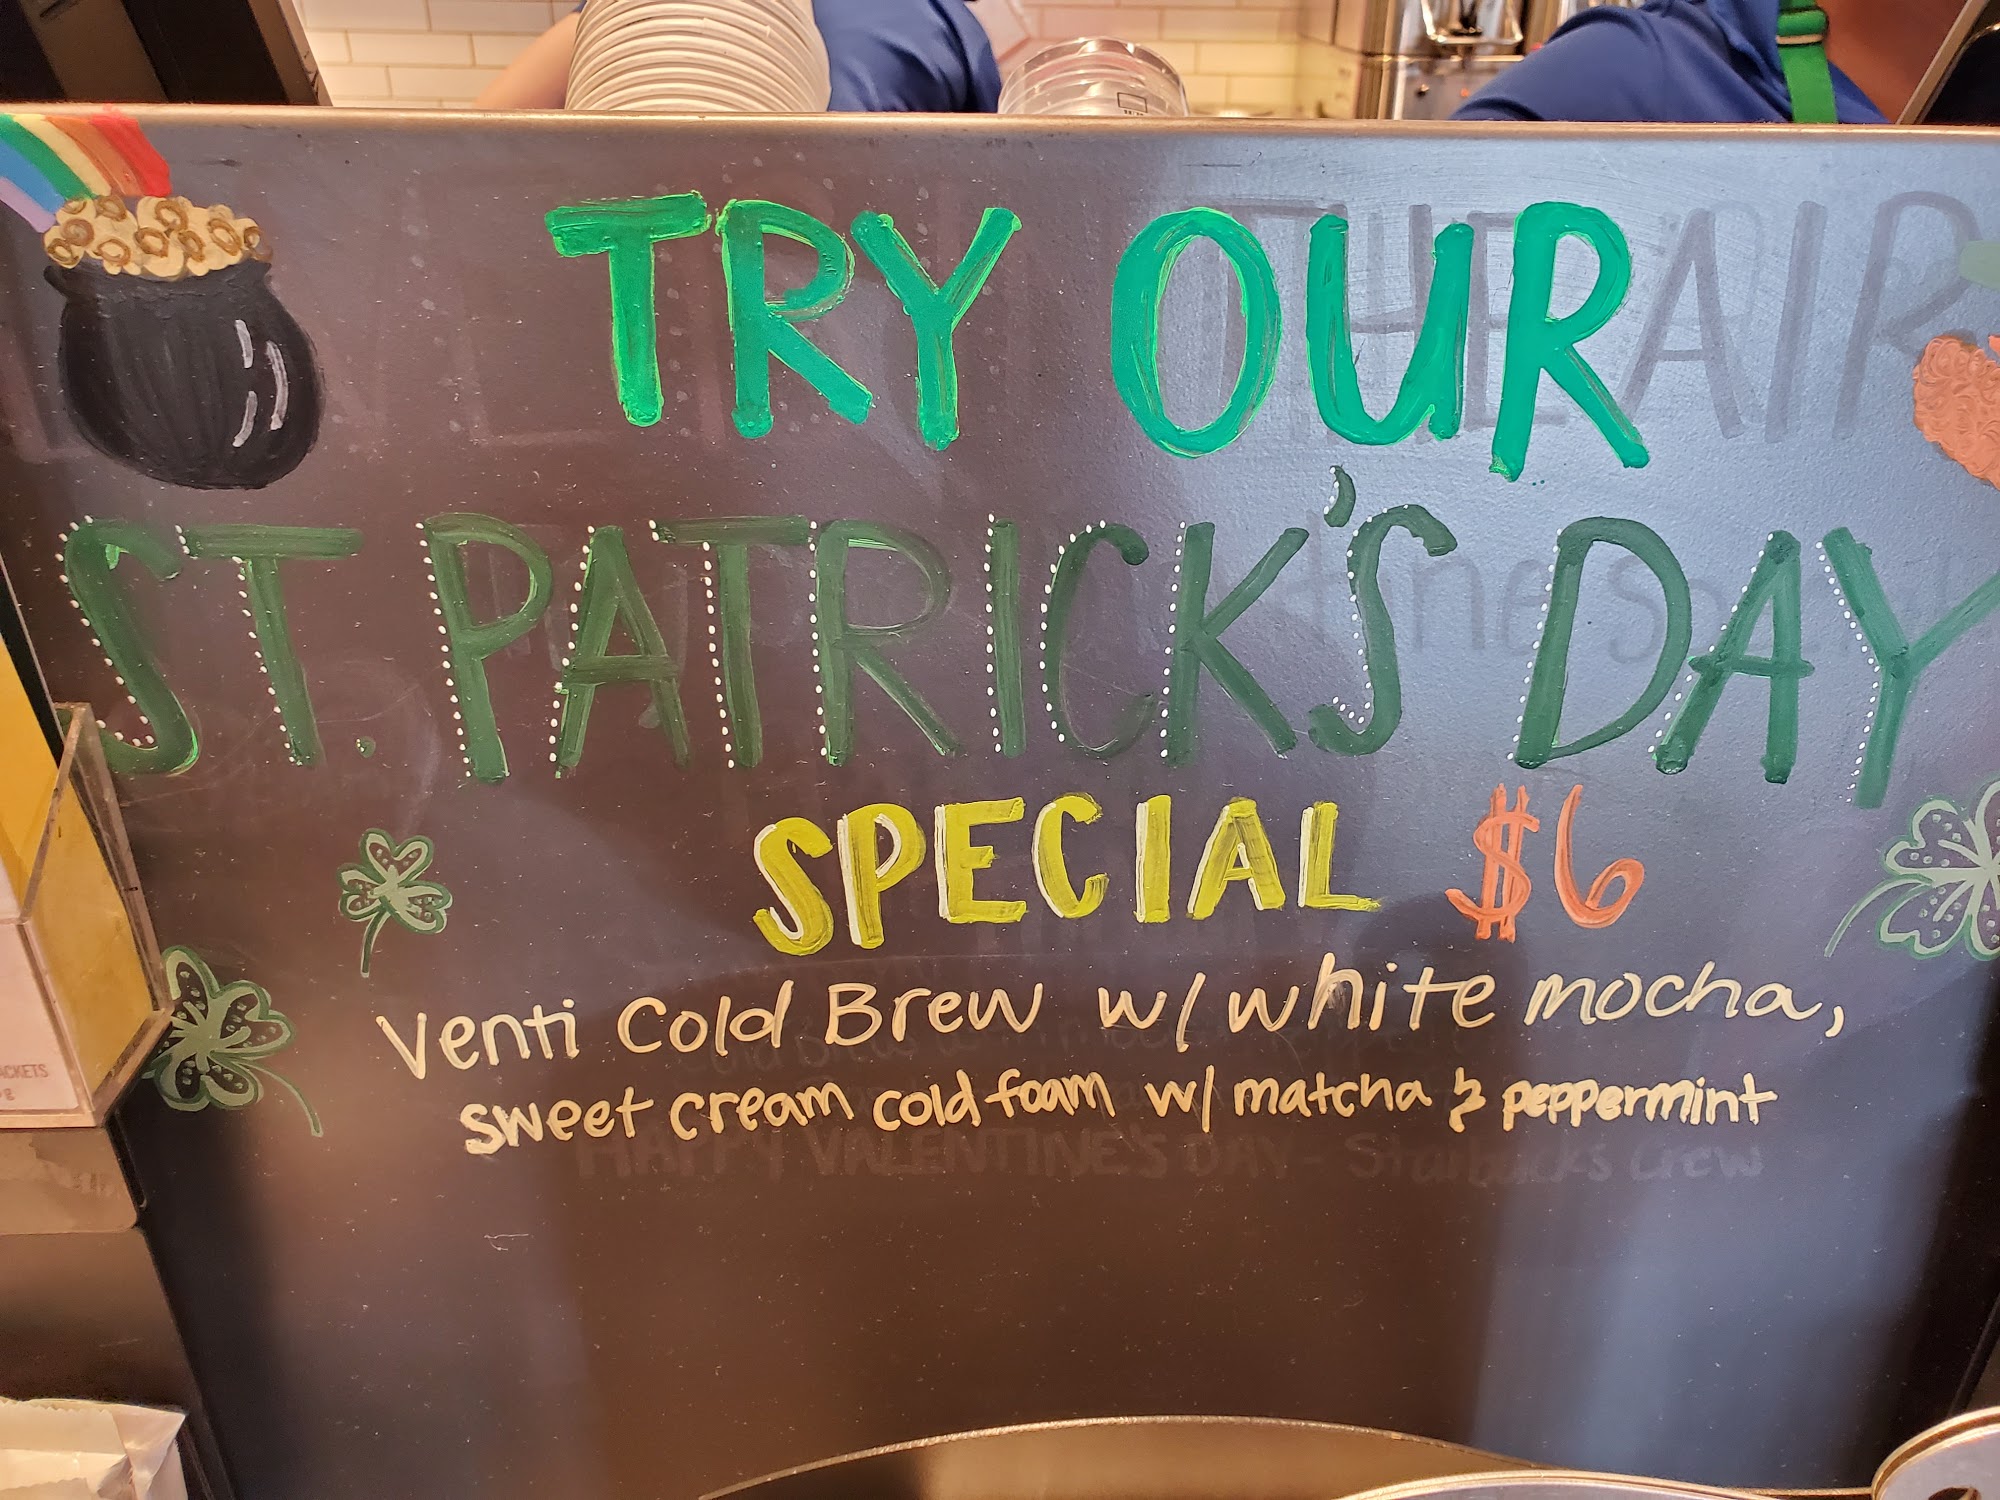 TRY OUR
ST. PATRICK'S DAY
SPECIAL $6
Venti Cold Brew w/ white mocha,
sweet cream cold foam w/ matcha & peppermint
HAPPY VALENTINE'S DAY - Starbucks Crew
THE AIR